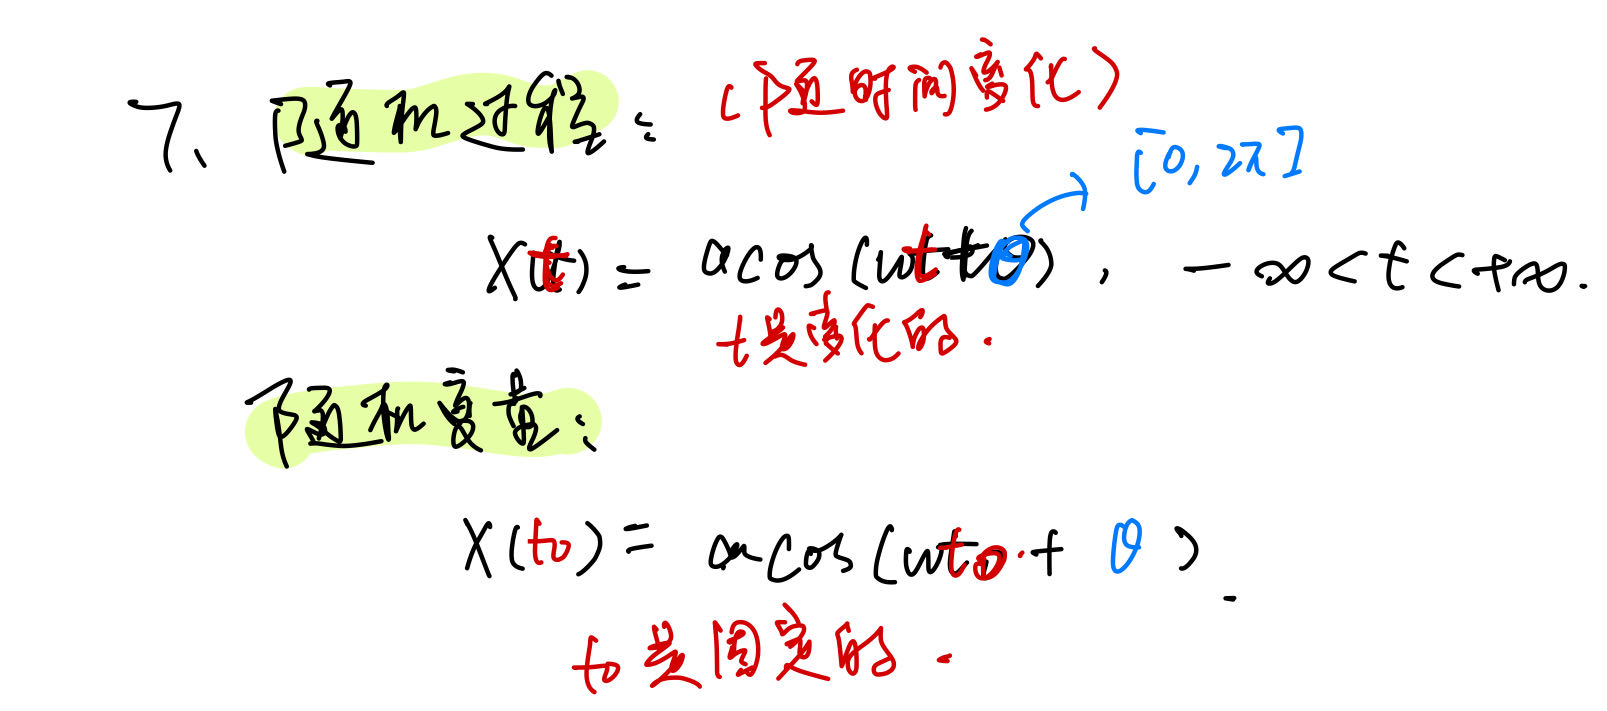 7、随机过程：（随时间变化）
[0, 2π]
X(t) = acos(ωt+θ), -∞<t<+∞.
t是变化的.
随机变量：
X(t0) = acos(ωt0.+ θ).
t0是固定的.